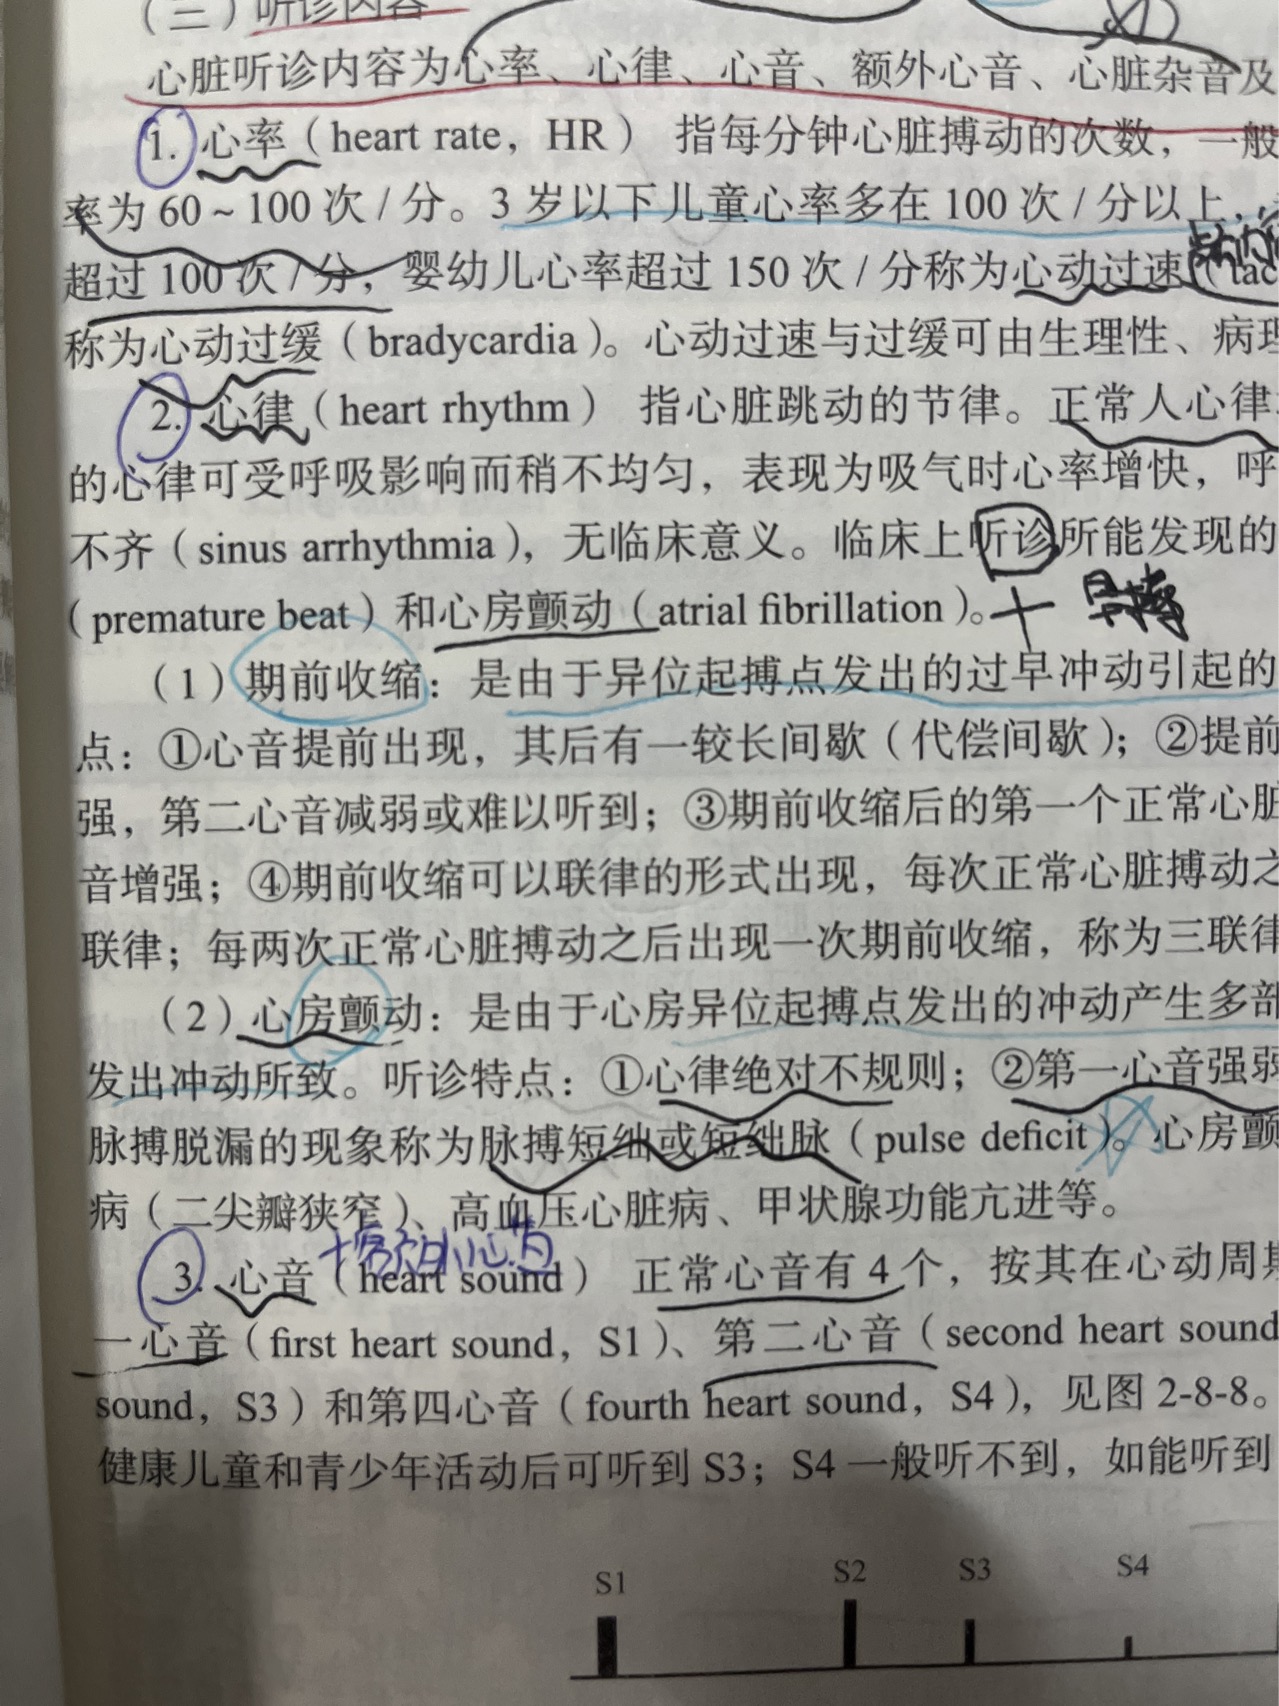 （三）听诊内容
心脏听诊内容为心率、心律、心音、额外心音、心脏杂音及
1. 心率（heart rate，HR） 指每分钟心脏搏动的次数，一般
率为 60 ~ 100 次 / 分。3 岁以下儿童心率多在 100 次 / 分以上，
超过 100 次 / 分，婴幼儿心率超过 150 次 / 分称为心动过速（tac
称为心动过缓（bradycardia）。心动过速与过缓可由生理性、病理
2. 心律（heart rhythm） 指心脏跳动的节律。正常人心律
的心律可受呼吸影响而稍不均匀，表现为吸气时心率增快，呼
不齐（sinus arrhythmia），无临床意义。临床上听诊所能发现的
（premature beat）和心房颤动（atrial fibrillation）。
（1）期前收缩：是由于异位起搏点发出的过早冲动引起的
点：①心音提前出现，其后有一较长间歇（代偿间歇）；②提前
强，第二心音减弱或难以听到；③期前收缩后的第一个正常心脏
音增强；④期前收缩可以联律的形式出现，每次正常心脏搏动之
联律；每两次正常心脏搏动之后出现一次期前收缩，称为三联律
（2）心房颤动：是由于心房异位起搏点发出的冲动产生多部
发出冲动所致。听诊特点：①心律绝对不规则；②第一心音强弱
脉搏脱漏的现象称为脉搏短绌或短绌脉（pulse deficit）。心房颤
病（二尖瓣狭窄）、高血压心脏病、甲状腺功能亢进等。
额外心音
3. 心音（heart sound） 正常心音有 4 个，按其在心动周期
一心音（first heart sound，S1）、第二心音（second heart sound
sound，S3）和第四心音（fourth heart sound，S4），见图 2-8-8。
健康儿童和青少年活动后可听到 S3；S4 一般听不到，如能听到
S1 S2 S3 S4